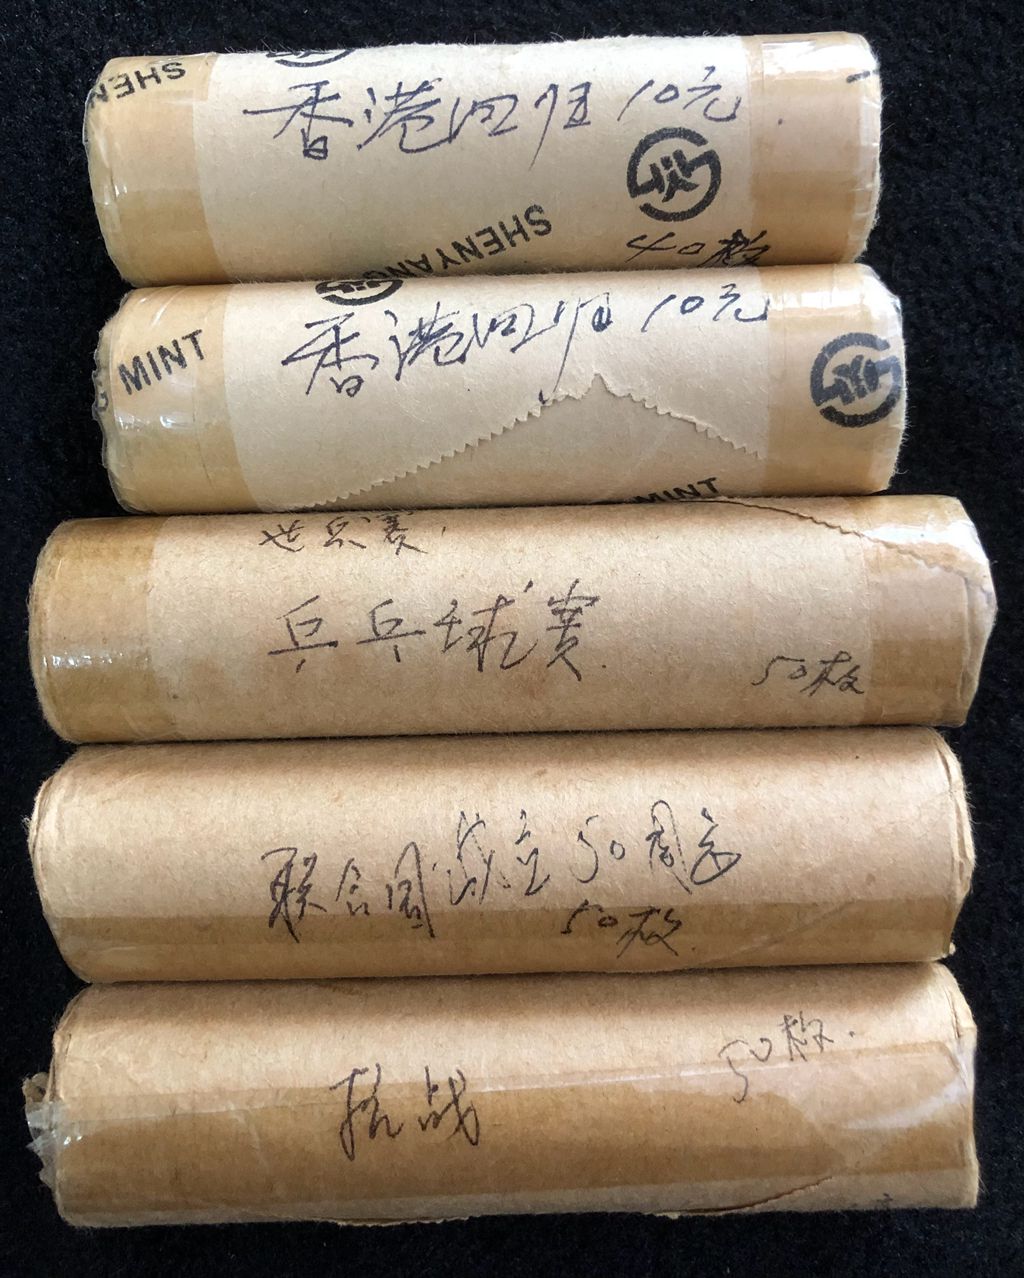 SHEN
香港回归 10元
SHENYANG
40枚
MINT
香港回归 10元
MINT
世乒赛
乒乓球赛
50枚
联合国成立50周年
50枚
50枚
抗战